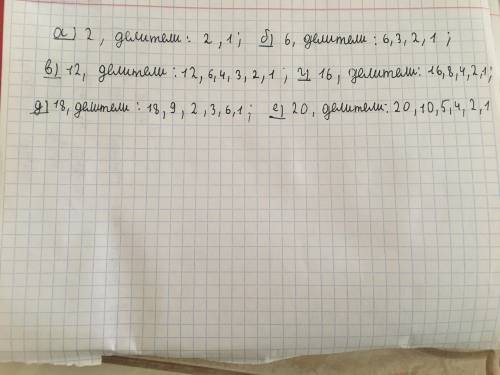 а) 2, делители: 2, 1; б) 6, делители: 6, 3, 2, 1;
в) 12, делители: 12, 6, 4, 3, 2, 1; г) 16, делители: 16, 8, 4, 2, 1;
д) 18, делители: 18, 9, 2, 3, 6, 1; е) 20, делители: 20, 10, 5, 4, 2, 1